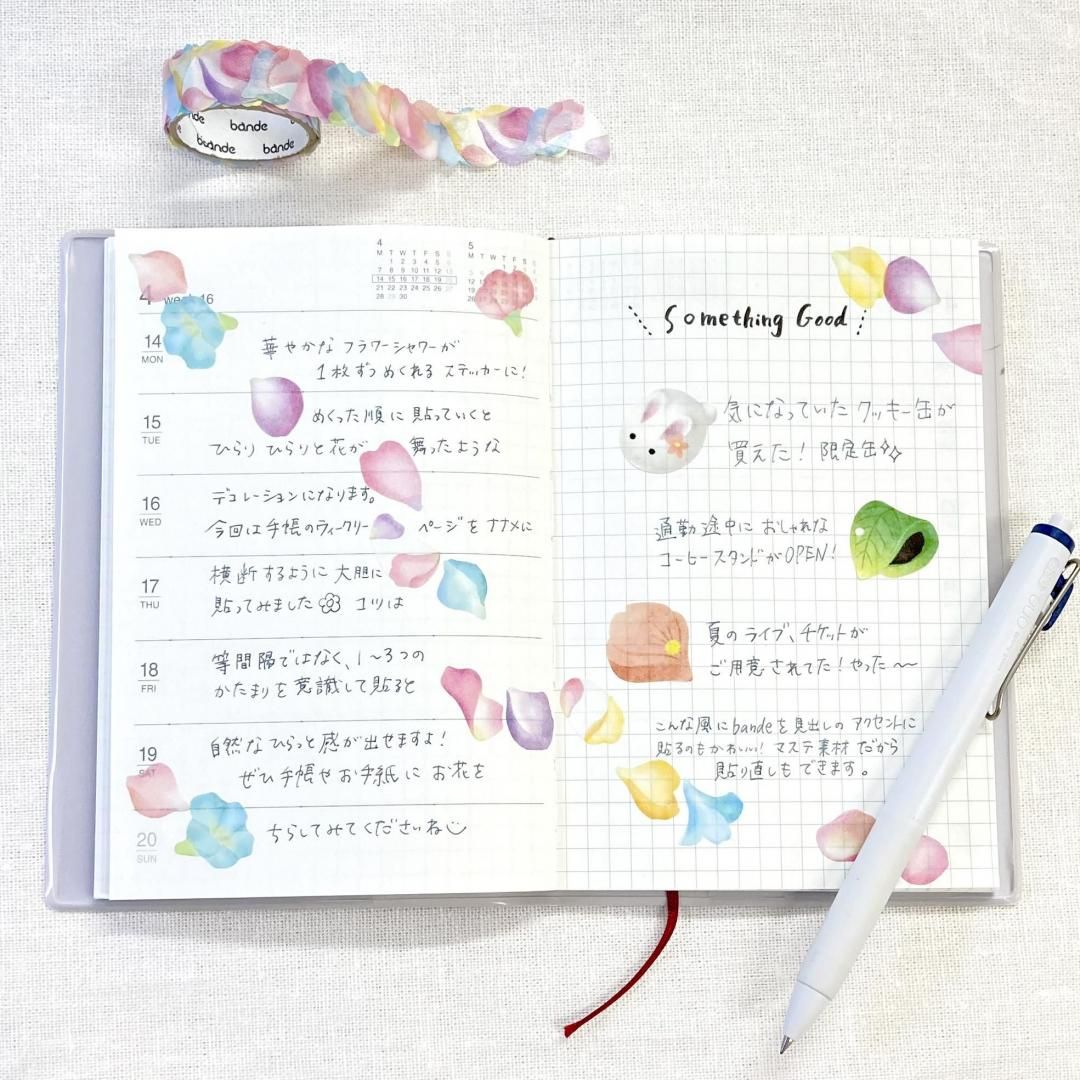 bande
bande
bande
4 week 16
4
M T W T F S S
1 2 3 4 5 6
7 8 9 10 11 12 13
14 15 16 17 18 19 20
21 22 23 24 25 26 27
28 29 30
5
M T W T F S S
14
MON
華やかな フラワーシャワーが
1枚ずつめくれる ステッカーに!
15
TUE
めくった順に貼っていくと
ひらり ひらりと花が 舞ったような
16
WED
デコレーションになります。
今回は手帳のウィークリー ページをナナメに
17
THU
横断するように大胆に
貼ってみました コツは
18
FRI
等間隔ではなく、1〜3つの
かたまりを意識して貼ると
19
SAT
自然なひらっと感が出せますよ!
ぜひ手帳やお手紙に お花を
20
SUN
ちらしてみてくださいね
Something Good
気になっていたクッキー缶が
買えた! 限定缶
通勤途中に おしゃれな
コーヒースタンドがOPEN!
夏のライブ、チケットが
ご用意されてた!やった〜〜
こんな風にbandeを見出しのアクセントに
貼るのもかわいい! マステ素材だから
貼り直しもできます。